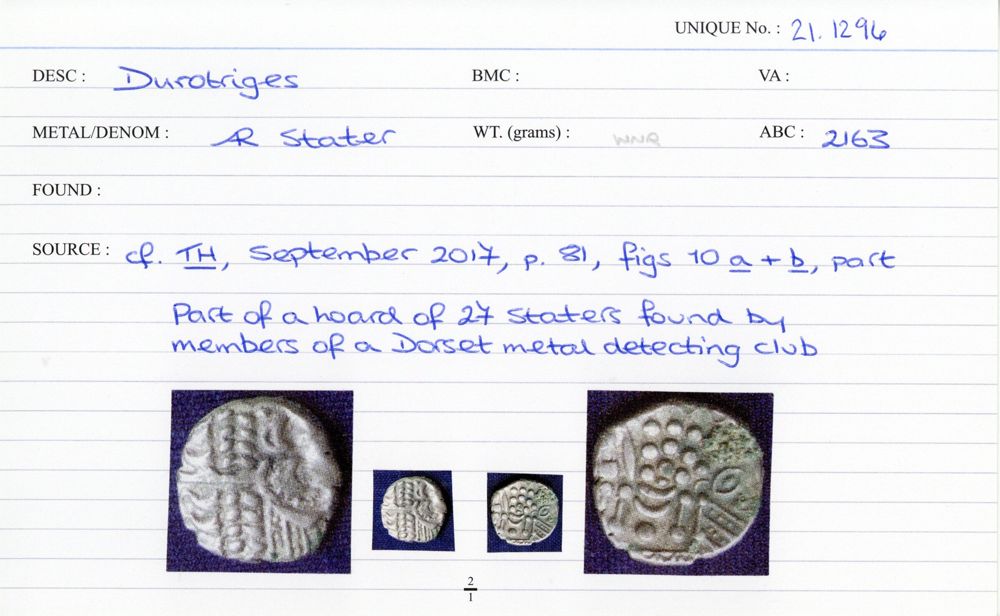 UNIQUE No. : 21.1296
DESC : Durotriges BMC : VA :
METAL/DENOM : AR Stater WT. (grams) : ABC : 2163
FOUND :
SOURCE : cf. TH, September 2017, p. 81, figs 10 a + b, part
Part of a hoard of 27 staters found by
members of a Dorset metal detecting club
2
1